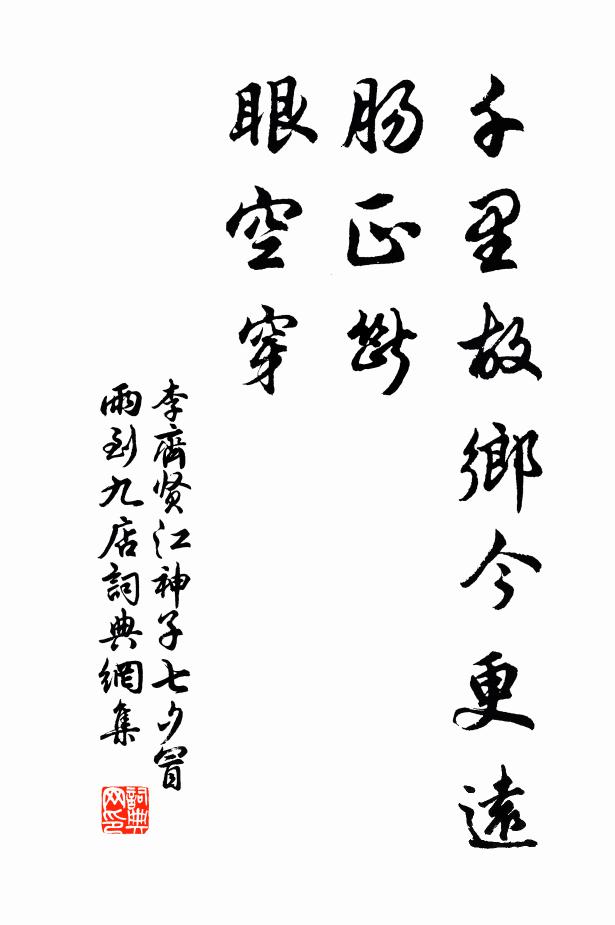 千里故鄉今更遠
腸正斷
眼空穿
李齊贤江神子七夕冒
雨到九店詞典網集
詞典
网印